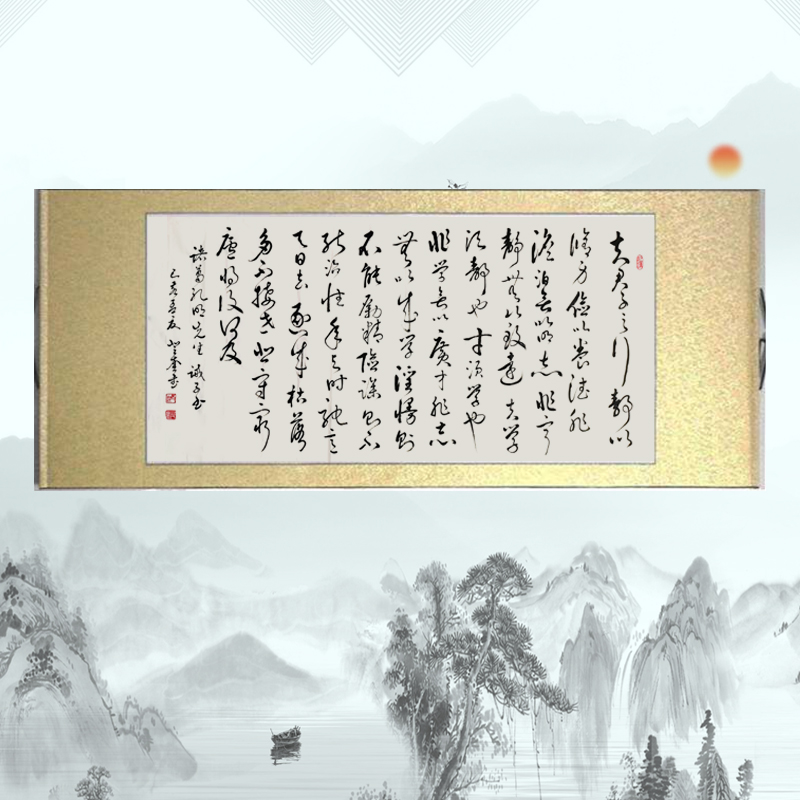 夫君子之行静以
修身俭以养德非
澹泊无以明志非宁
静无以致远夫学
须静也才须学也
非学无以广才非志
无以成学淫慢则
不能励精险躁则不
能治性年与时驰意
与日去遂成枯落
多不接世悲守穷
庐将复何及
诸葛孔明先生诫子书